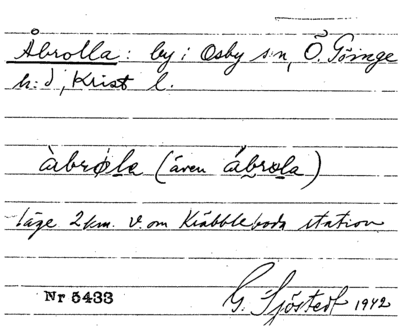 Åbrolla: by i Osby sn, Ö. Göinge
h:d, Krist l.
àbrola (även ábrola)
Läge 2 km. v. om Kräbbleboda station
Nr 5433
G. Sjöstedt 1942